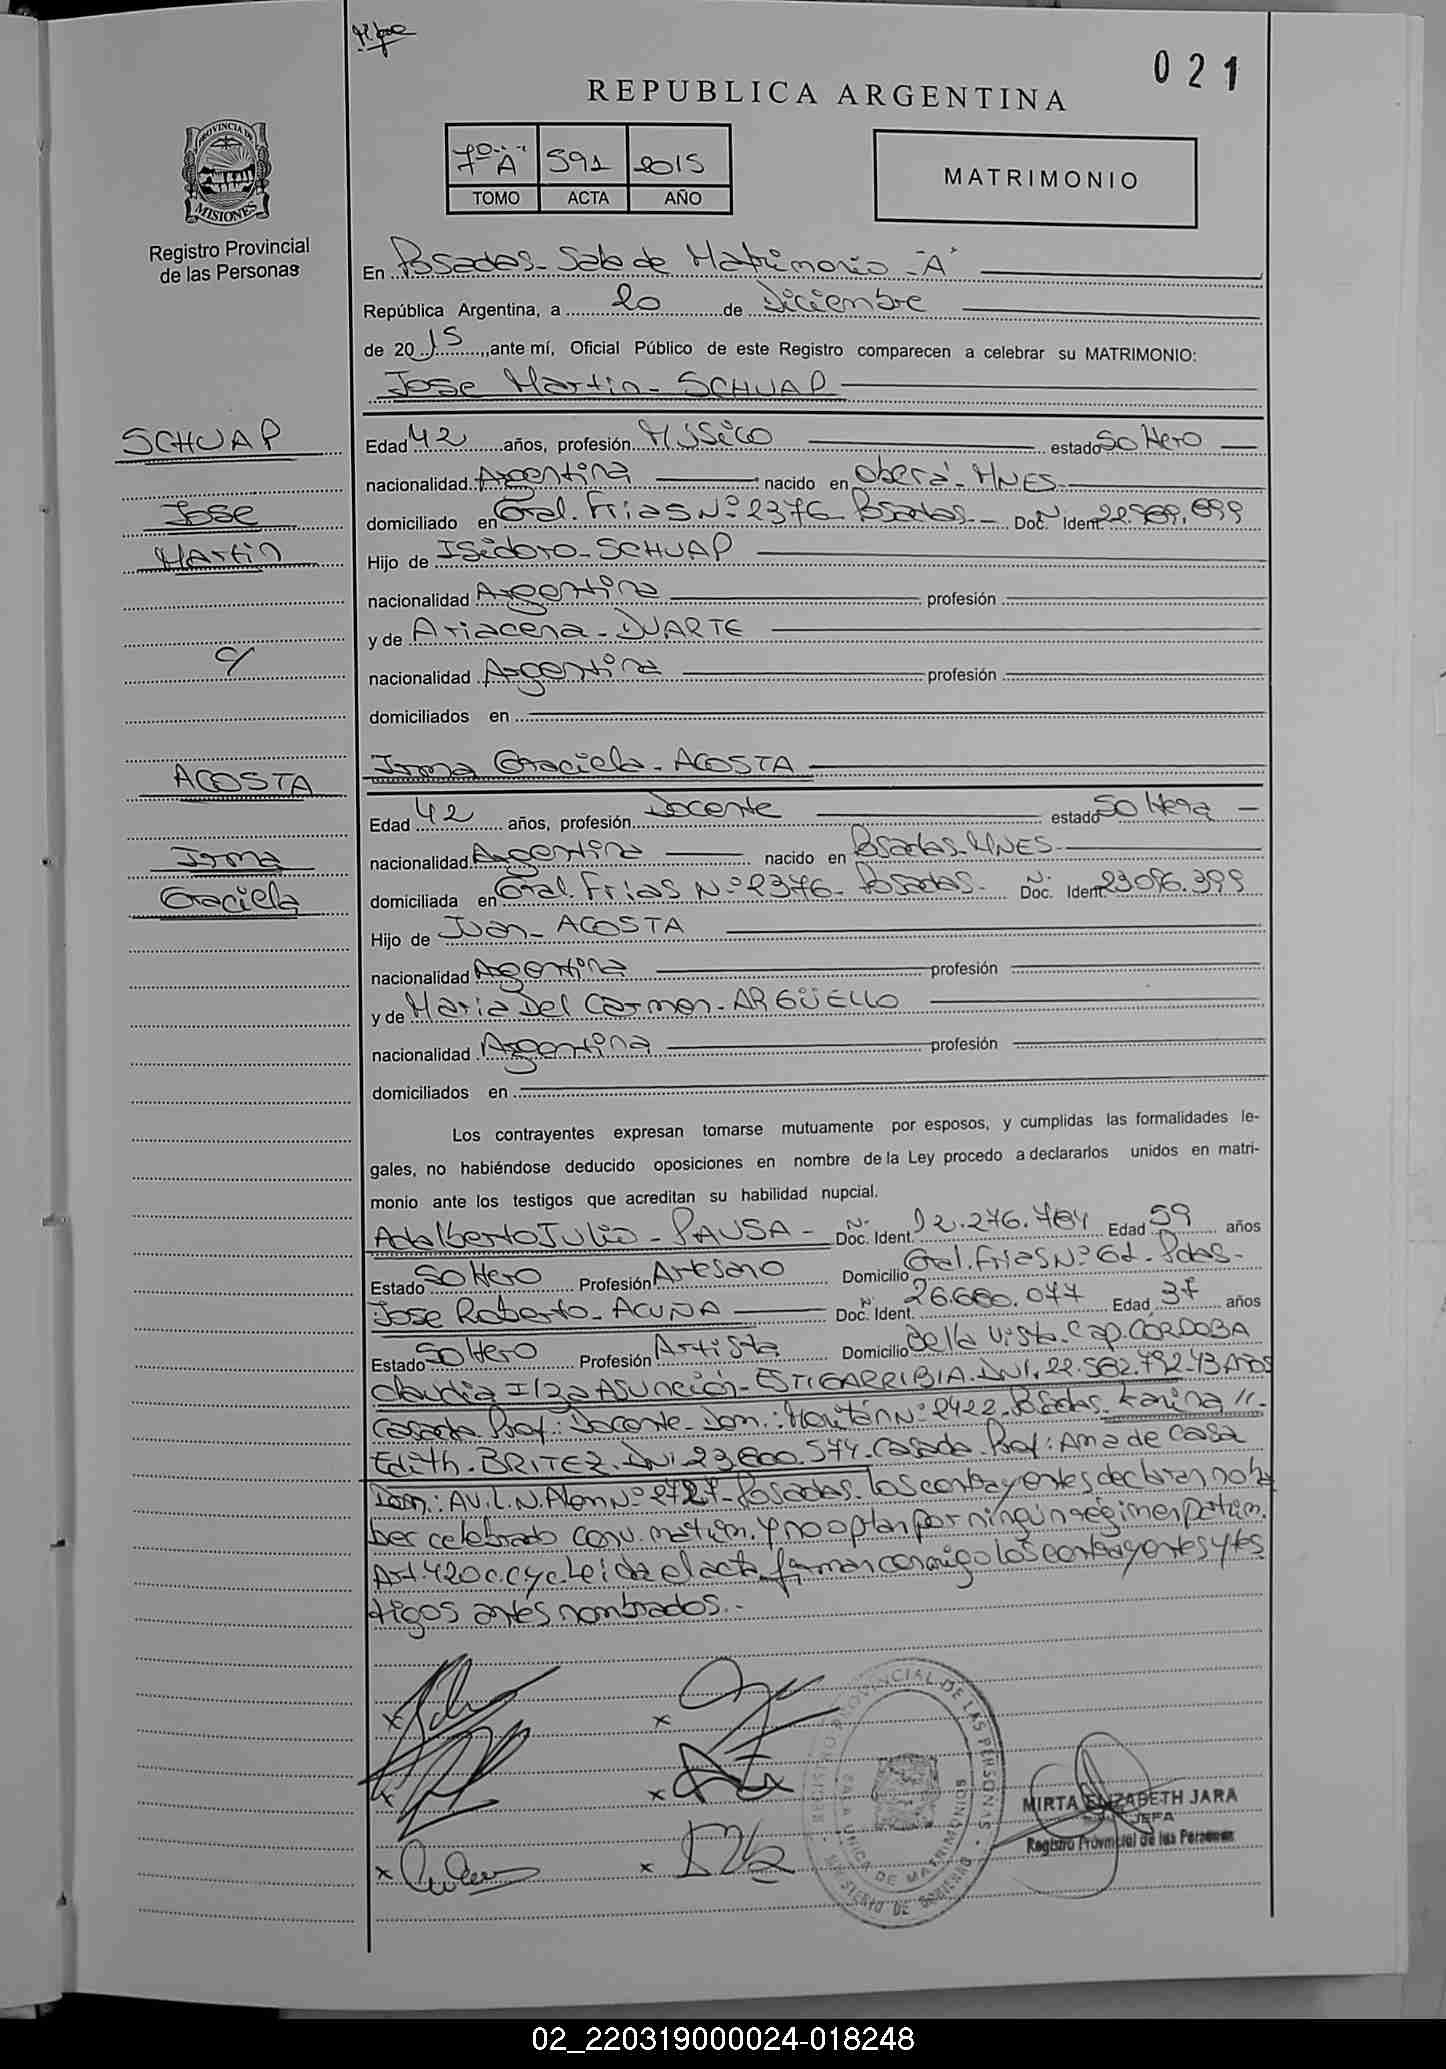 021
REPUBLICA ARGENTINA
PROVINCIA DE
MISIONES
Registro Provincial
de las Personas
7º "A" 591 2015
TOMO ACTA AÑO
MATRIMONIO
En Posadas - Sala de Matrimonio - "A"
República Argentina, a 20 de Diciembre
de 2015, ante mí, Oficial Público de este Registro comparecen a celebrar su MATRIMONIO:
Jose Martin - SCHUAP
SCHUAP
Jose
Martin
c/
ACOSTA
Irma
Graciela
Edad 42 años, profesión Músico estado Soltero
nacionalidad Argentina nacido en Oberá - MNES -
domiciliado en Gral. Frias Nº 2376 - Posadas - Doc. Nº Ident.
Hijo de Isidoro - SCHUAP
nacionalidad Argentina profesión
y de Ariacena - DUARTE
nacionalidad Argentina profesión
domiciliados en
Irma Graciela - ACOSTA
Edad 42 años, profesión Docente estado Soltera
nacionalidad Argentina nacido en Posadas - MNES -
domiciliada en Gral. Frias Nº 2376 - Posadas - Doc. Nº Ident. 23.096.399
Hijo de Juan - ACOSTA
nacionalidad Argentina profesión
y de Maria Del Carmen - ARGÜELLO
nacionalidad Argentina profesión
domiciliados en
Los contrayentes expresan tomarse mutuamente por esposos, y cumplidas las formalidades le-
gales, no habiéndose deducido oposiciones en nombre de la Ley procedo a declararlos unidos en matri-
monio ante los testigos que acreditan su habilidad nupcial.
Adalberto Julio - PAUSA - Doc. Nº Ident. 12.276.764 Edad 59 años
Estado Soltero Profesión Artesano Domicilio Gral. Frias Nº Pdas -
Jose Roberto - ACUÑA Doc. Nº Ident. 26.660.077 Edad 37 años
Estado Soltero Profesión Artista Domicilio Bella Vista - Cap. CORDOBA
Claudia Ilza Asunción - ESTIGARRIBIA - DNI. 22.562.792 - 43 Años
Casada - Prof.: Docente - Dom.: Nº 2422 - Posadas. Karina //-
Edith - BRITEZ - DNI 23.600.574 - Casada - Prof: Ama de Casa
Dom.: AV. L. N. Alem Nº 2727 - Posadas. los contrayentes declaran no ha
ber celebrado conv. matrim. y no optan por ningún régimen patrim.
Art. 420 c.c y c. Leída el acta firman conmigo los contrayentes y tes
tigos antes nombrados. -
REGISTRO PROVINCIAL DE LAS PERSONAS
SALA UNICA DE MATRIMONIOS
MINISTERIO DE GOBIERNO
MIRTA ELIZABETH JARA
JEFA
Registro Provincial de las Personas
02_220319000024-018248